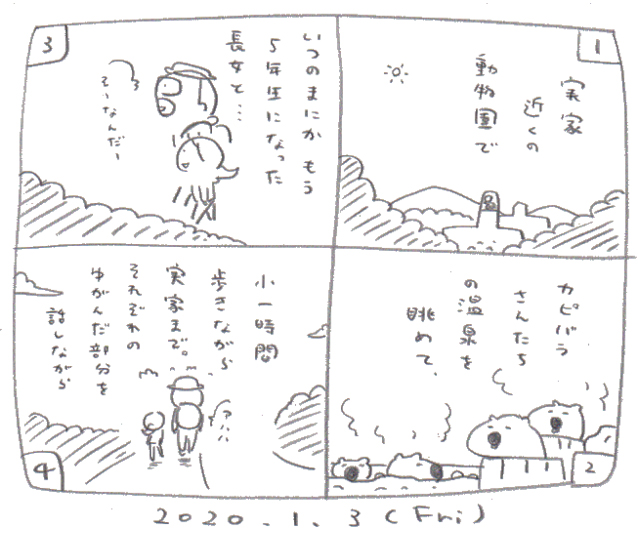 1
実家
近くの
動物園で
2
カピバラ
さんたち
の温泉を
眺めて、
3
いつのまにか もう
5年生になった
長女と…
そうなんだー
4
小一時間
歩きながら
実家まで。
それぞれの
ゆがんだ部分を
話しながら
2020.1.3(Fri)